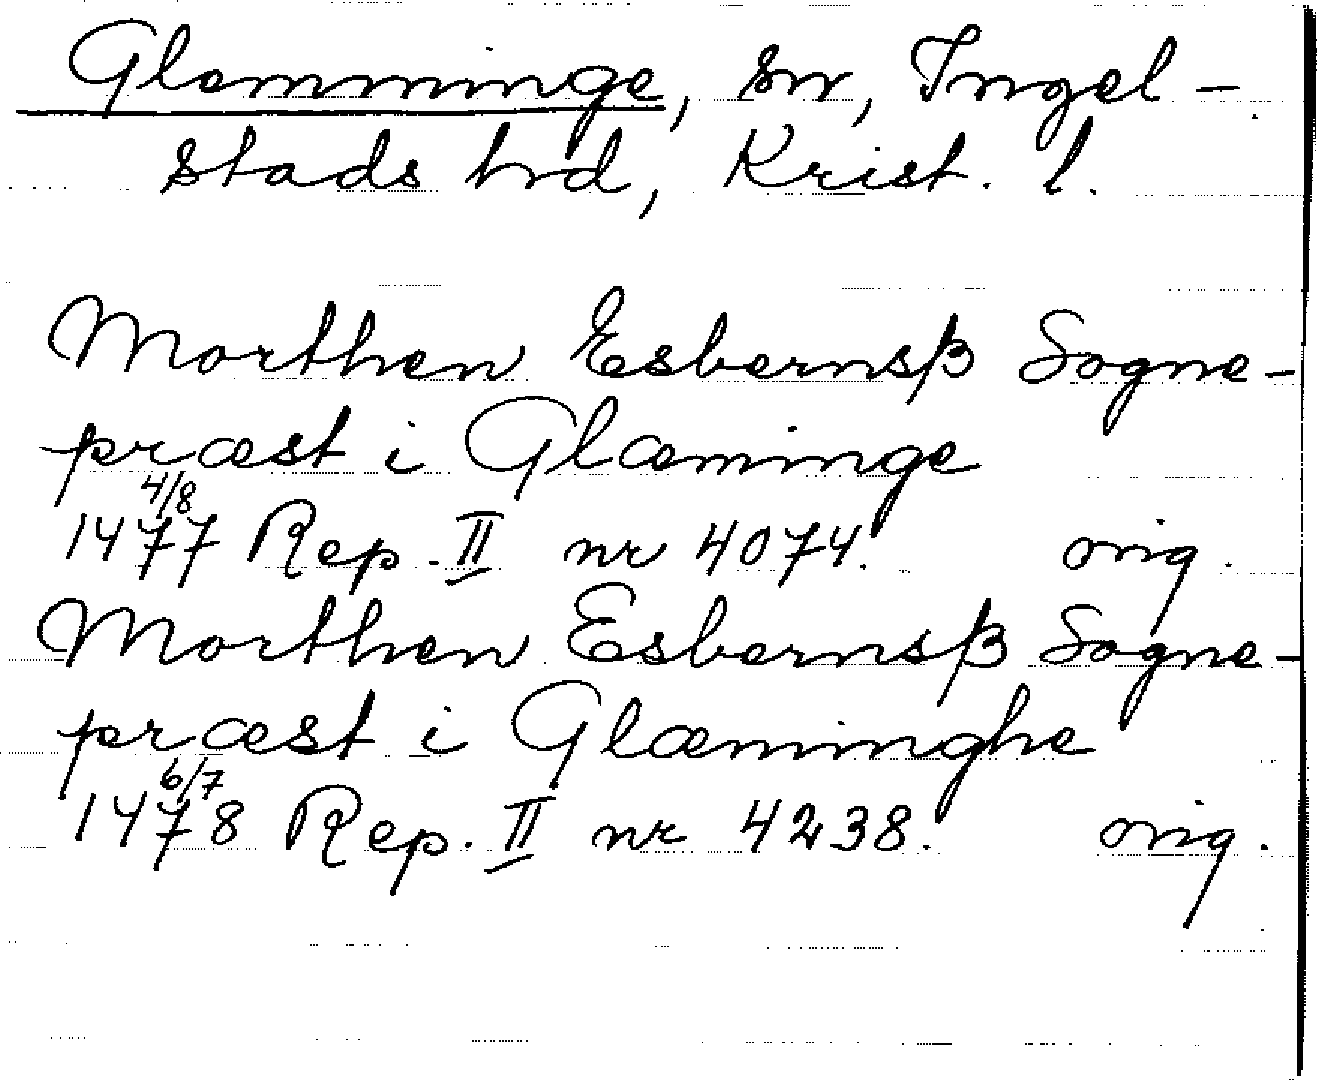 Glemminge, sn, Ingel-
stads hrd, Krist. l.
Morthen Esbernsß Sogne-
præst i Glæminge
4/8
1477 Rep. II nr 4074. orig.
Morthen Esbernsß Sogne-
præst i Glæminghe
6/7
1478 Rep. II nr 4238. orig.